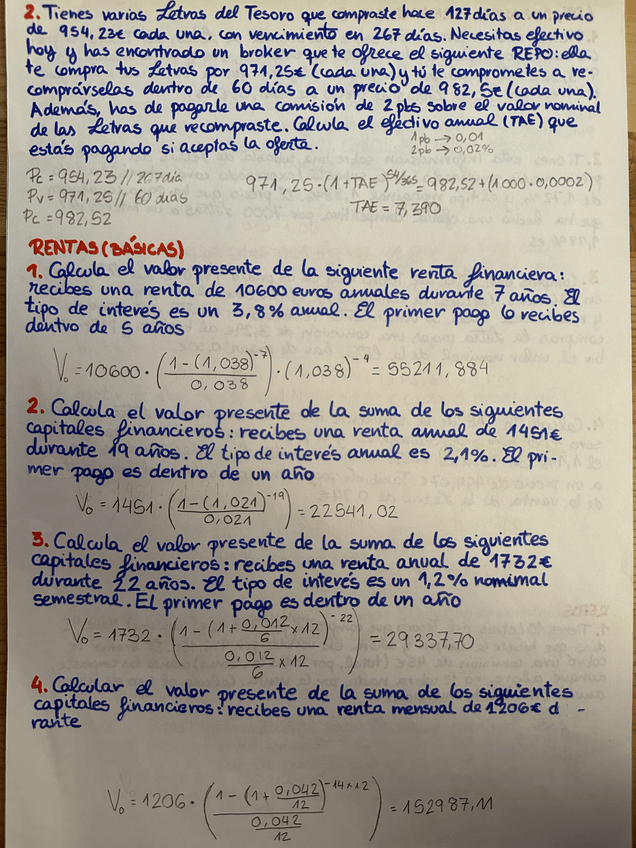 2. Tienes varias Letras del Tesoro que compraste hace 127 días a un precio
de 954,23€ cada una, con vencimiento en 267 días. Necesitas efectivo
hoy y has encontrado un broker que te ofrece el siguiente REPO: ella
te compra tus Letras por 971,25€ (cada una) y tú te comprometes a re-
comprárselas dentro de 60 días a un precio de 982,5€ (cada una).
Además, has de pagarle una comisión de 2 pbs sobre el valor nominal
de las Letras que recompraste. Calcula el efectivo anual (TAE) que
estás pagando si aceptas la oferta.
1pb → 0,01
2pb → 0,02%
Pc = 954,23 // 267 dia
Pv = 971,25 // 60 dias
Pc = 982,52
971,25 · (1 + TAE)^54/365 = 982,52 + (1000 · 0,0002)
TAE = 7,390
RENTAS (BÁSICAS)
1. Calcula el valor presente de la siguiente renta financiera:
recibes una renta de 10600 euros anuales durante 7 años. El
tipo de interés es un 3,8% anual. El primer pago lo recibes
dentro de 5 años
V₀ = 10600 · (1 - (1,038)^-7 / 0,038) · (1,038)^-4 = 55211,884
2. Calcula el valor presente de la suma de los siguientes
capitales financieros: recibes una renta anual de 1451€
durante 19 años. El tipo de interés anual es 2,1%. El pri-
mer pago es dentro de un año
V₀ = 1451 · (1 - (1,021)^-19 / 0,021) = 22541,02
3. Calcula el valor presente de la suma de los siguientes
capitales financieros: recibes una renta anual de 1732€
durante 22 años. El tipo de interés es un 1,2% nomimal
semestral. El primer pago es dentro de un año
V₀ = 1732 · (1 - (1 + 0,012/6 x 12)^-22 / 0,012/6 x 12) = 29337,70
4. Calcular el valor presente de la suma de los siguientes
capitales financieros: recibes una renta mensual de 1206€ d -
rante
V₀ = 1206 · (1 - (1 + 0,042/12)^-14x12 / 0,042/12) = 152987,11